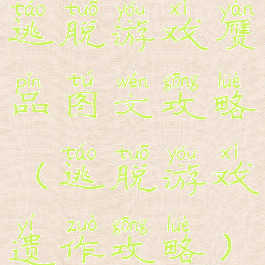 táo tuō yóu xì yàn
逃脱游戏赝
pǐn tú wén gōng lüè
品图文攻略
táo tuō yóu xì
（逃脱游戏
yí zuò gōng lüè
遗作攻略）